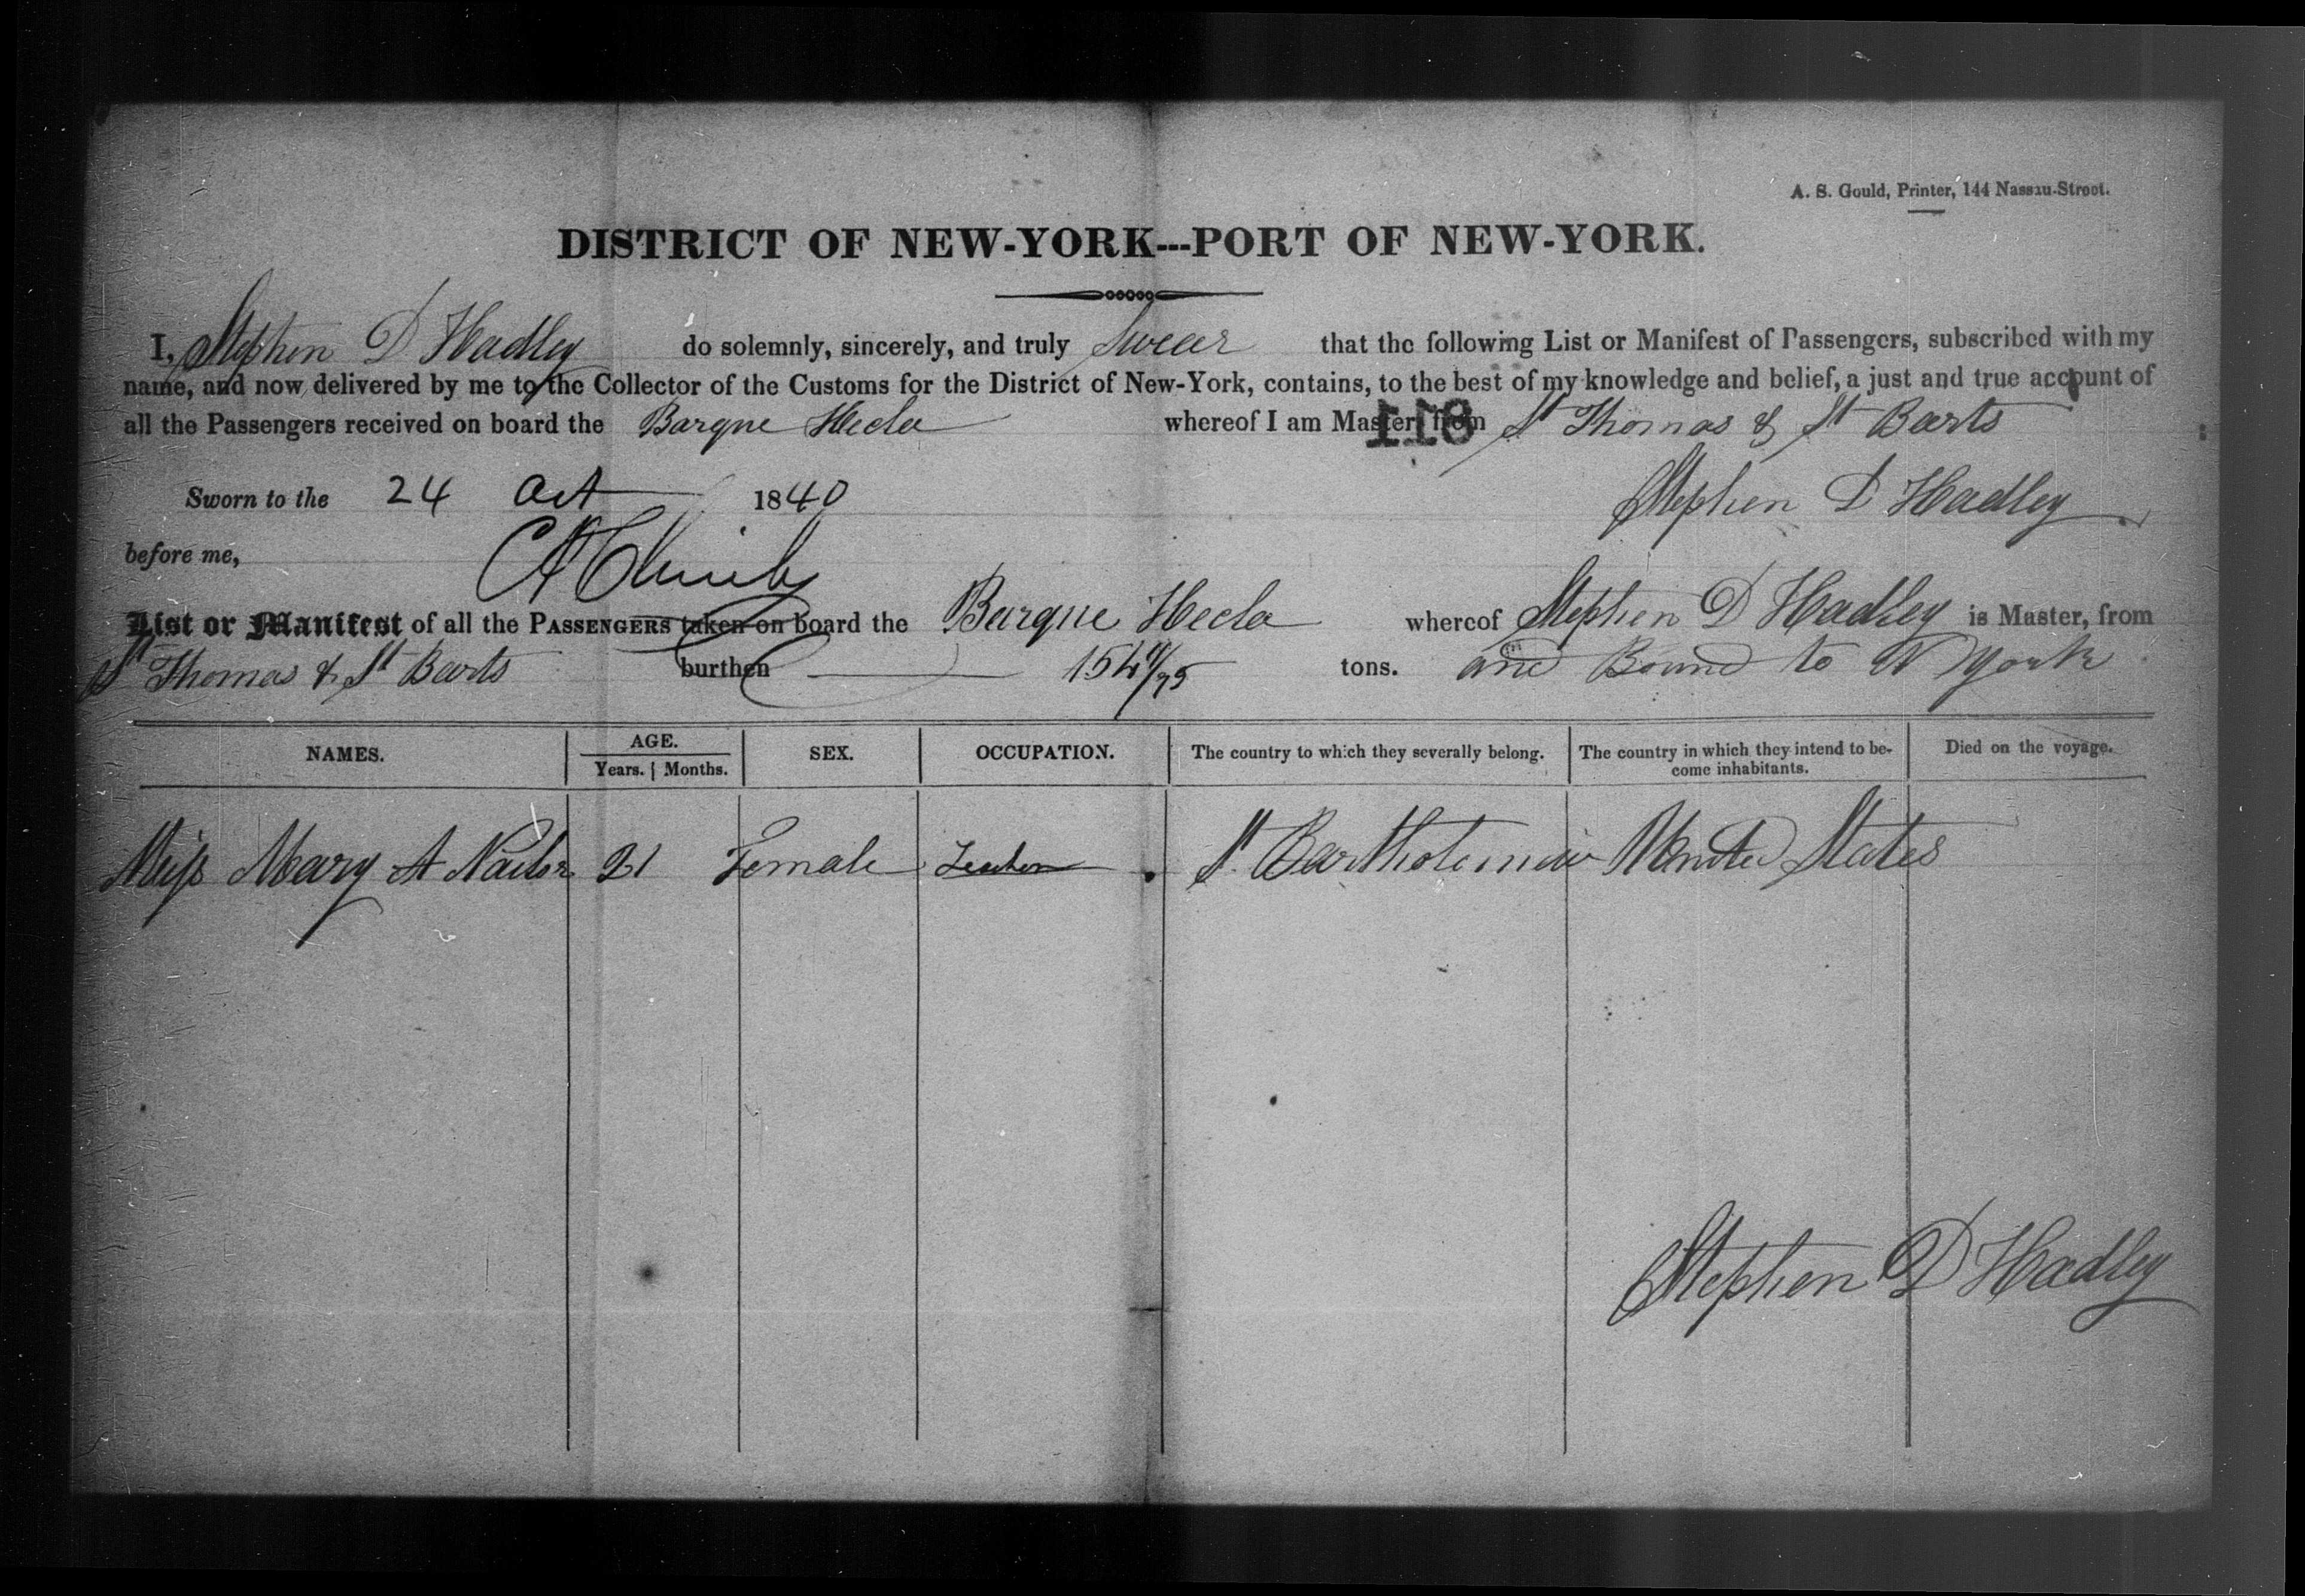 A. S. Gould, Printer, 144 Nassau-Street.
DISTRICT OF NEW-YORK---PORT OF NEW-YORK.
I, Stephen D Hadley do solemnly, sincerely, and truly Swear that the following List or Manifest of Passengers, subscribed with my
name, and now delivered by me to the Collector of the Customs for the District of New-York, contains, to the best of my knowledge and belief, a just and true account of
all the Passengers received on board the Barque Hecla whereof I am Master, from St Thomas & St Barts
Sworn to the 24 Oct 1840
Stephen D Hadley
before me,
List or Manifest of all the PASSENGERS taken on board the Barque Hecla whereof Stephen D Hadley is Master, from
St Thomas & St Barts burthen 154 tons. and Bound to N York
NAMES. AGE. Years. Months. SEX. OCCUPATION. The country to which they severally belong. The country in which they intend to become inhabitants. Died on the voyage.
Miss Mary A 21 Female St Bartholomew United States
Stephen D Hadley